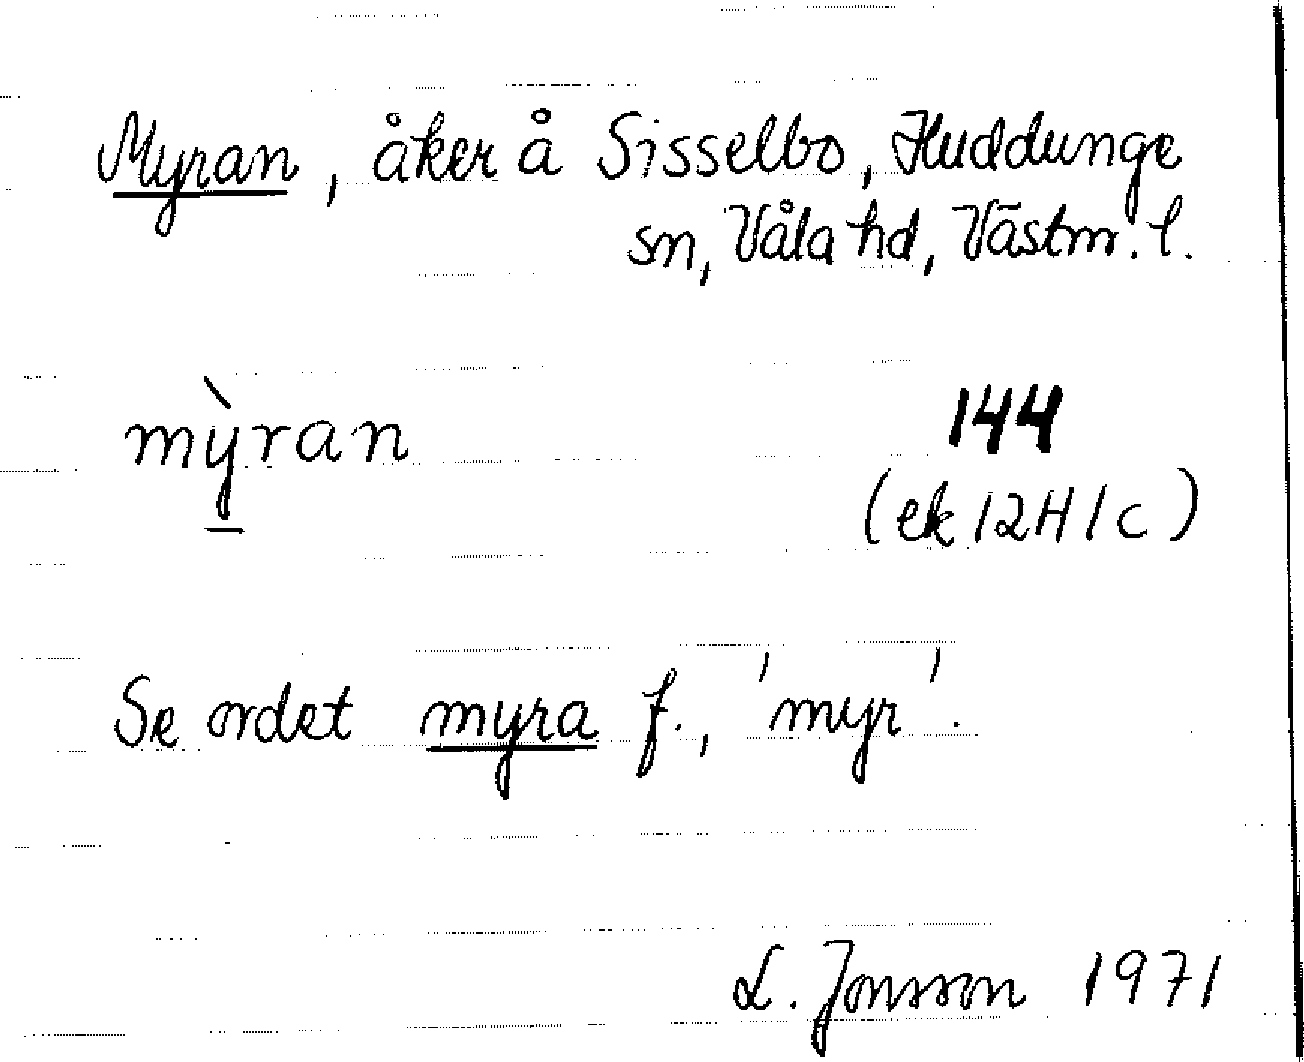 Myran, åker å Sisselbo, Huddunge
sn, Våla hd, Västm. l.
mỳran 144
(ek 12H1c)
Se ordet myra f., 'myr'.
L. Jonsson 1971